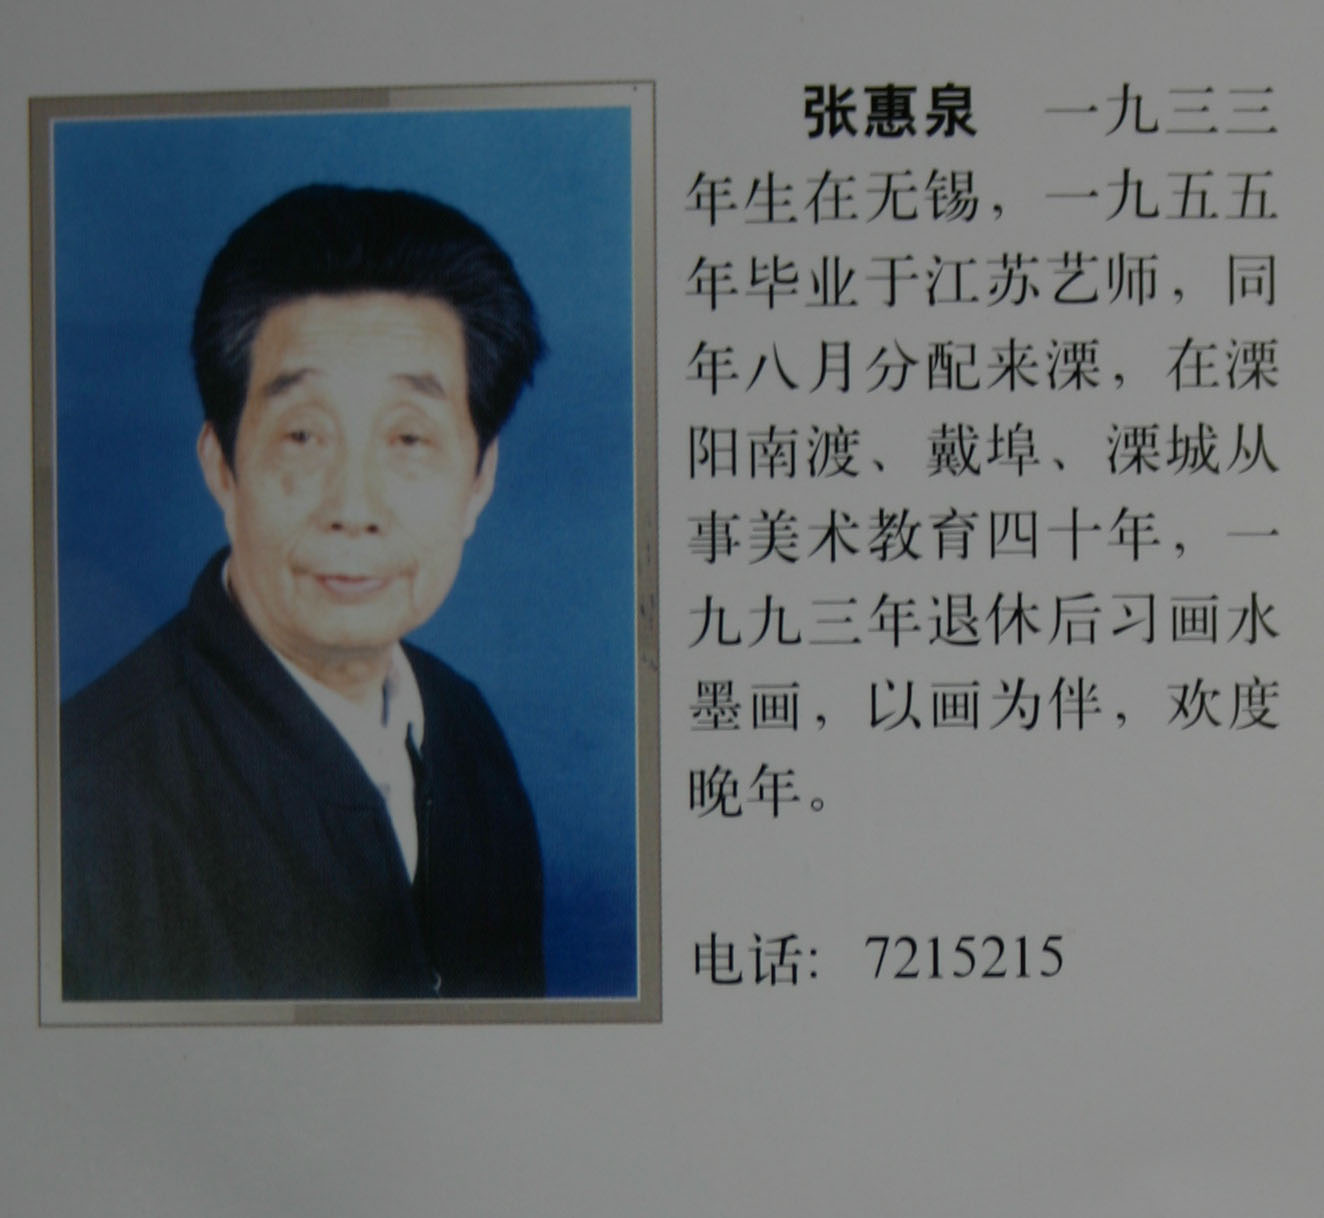 张惠泉 一九三三
年生在无锡，一九五五
年毕业于江苏艺师，同
年八月分配来溧，在溧
阳南渡、戴埠、溧城从
事美术教育四十年，一
九九三年退休后习画水
墨画，以画为伴，欢度
晚年。
电话：7215215